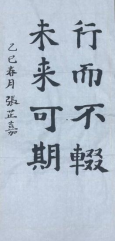 行而不輟
未来可期
乙巳春月 張芷嘉